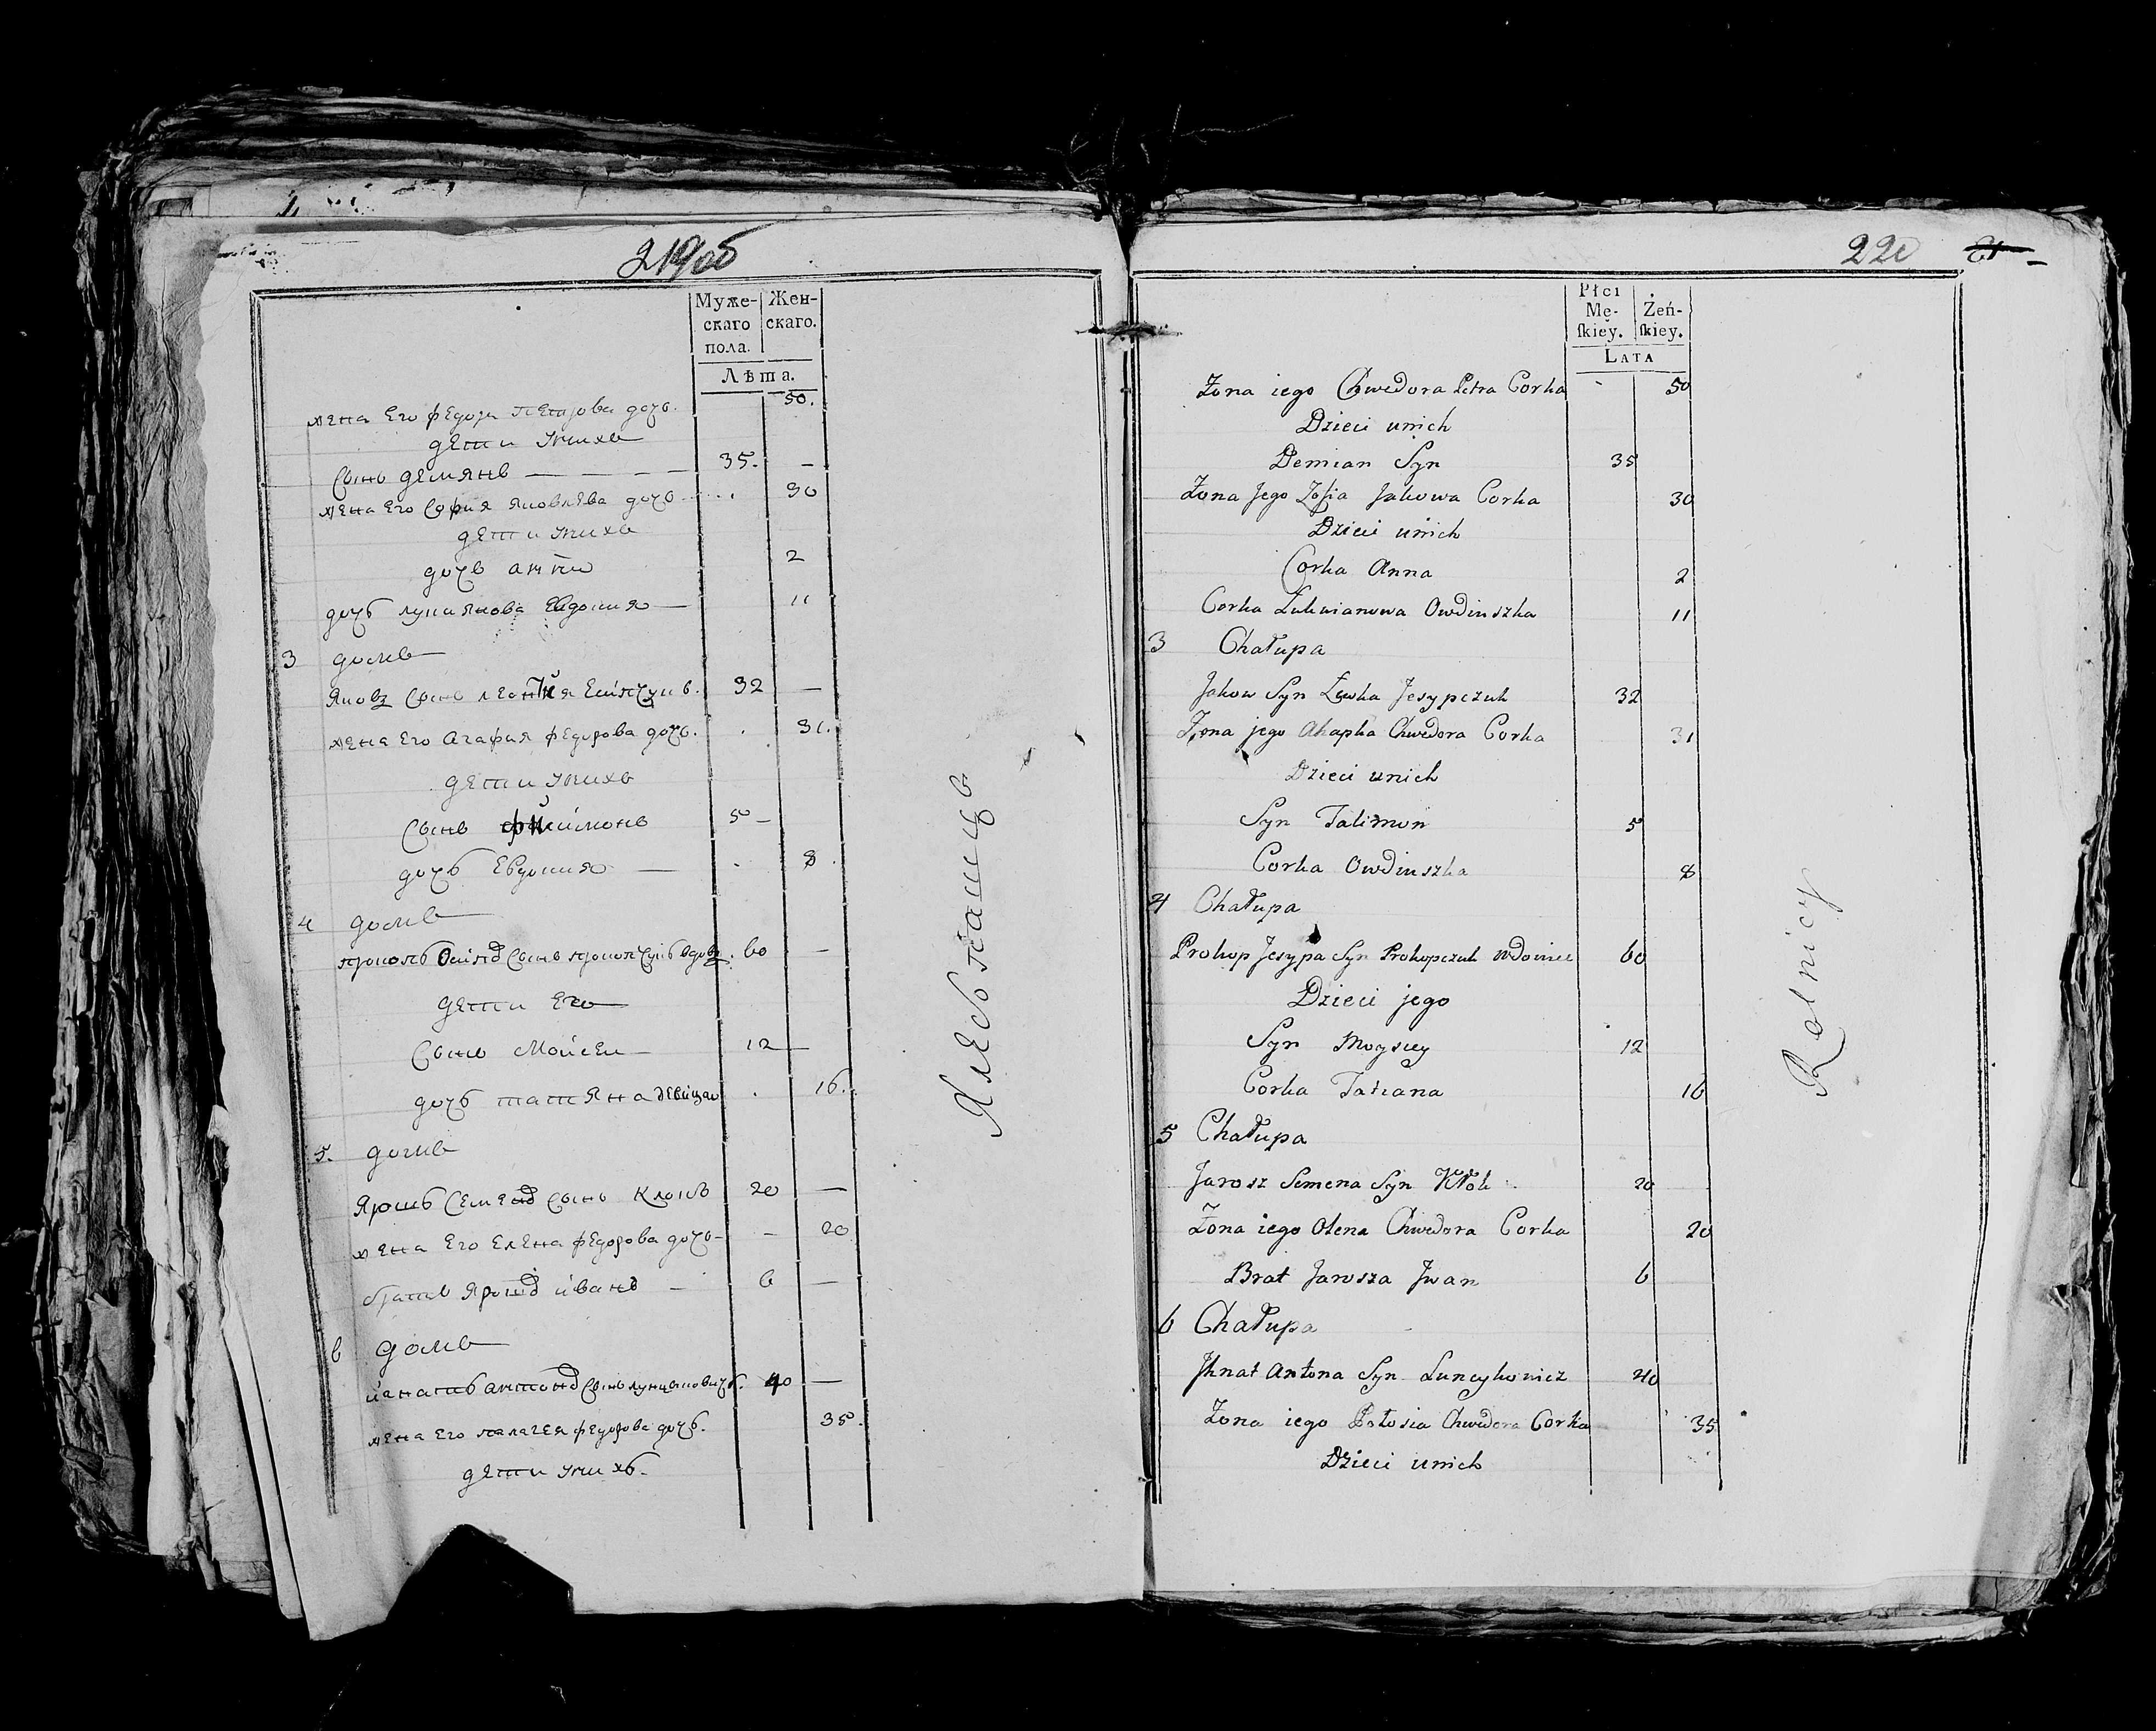 219об
Муже-
скаго
пола.
Жен-
скаго.
Лѣта.
жена Его федора Петрова дочь. 50.
дети у нихъ
Сынъ демянъ — 35. —
жена Его София яковлева дочь 30
дети у нихъ
дочь анна 2
дочь лукиянова Евдокия — 11
3 домъ
яковъ Сынъ леонтия Есипчукъ. 32 —
жена Его агафия федорова дочь. 31.
дети у нихъ
Сынъ филимонъ 5 —
дочь Евдокия — 8.
4 домъ
прокопъ Осипа Сынъ прокопчукъ вдовъ. 60 —
дети Его
Сынъ Мойсеи — 12 —
дочь татяна девица 16.
5. домъ
ярошъ Семена Сынъ Клокъ 20 —
жена Его Елена федорова дочь — 20
братъ яроша иванъ — 6 —
6 домъ
игнатъ антона Сынъ лунцыковичъ. 40 —
жена Его палагея федорова дочь. 35.
дети у нихъ.
Хлебопашцъ
220
21
Płci
Mę-
ſkiey.
Żeń-
ſkiey.
LATA
Zona iego Chwedora Petra Corka 50
Dzieci unich
Demian Syn 35
Zona Jego Zofia Jakowa Corka 30
Dzieci unich
Corka Anna 2
Corka Lukianowa Owdiuszka 11
3 Chałupa
Jakow Syn Lewka Jesypczuk 32
Zona jego Ahapka Chwedora Corka 31
Dzieci unich
Syn Talimon 5
Corka Owdiuszka 8
4 Chałupa
Prokop Jesypa Syn Prokopczuk wdowiec 60
Dzieci jego
Syn Moysiey 12
Corka Tatiana 16
5 Chałupa
Jarosz Semena Syn Kłok 20
Zona iego Olena Chwedora Corka 20
Brat Jarosza Jwan 6
6 Chałupa
Jhnat Antona Syn Luncykowicz 40
Zona iego Połosia Chwedora Corka 35
Dzieci unich
Rolnicy